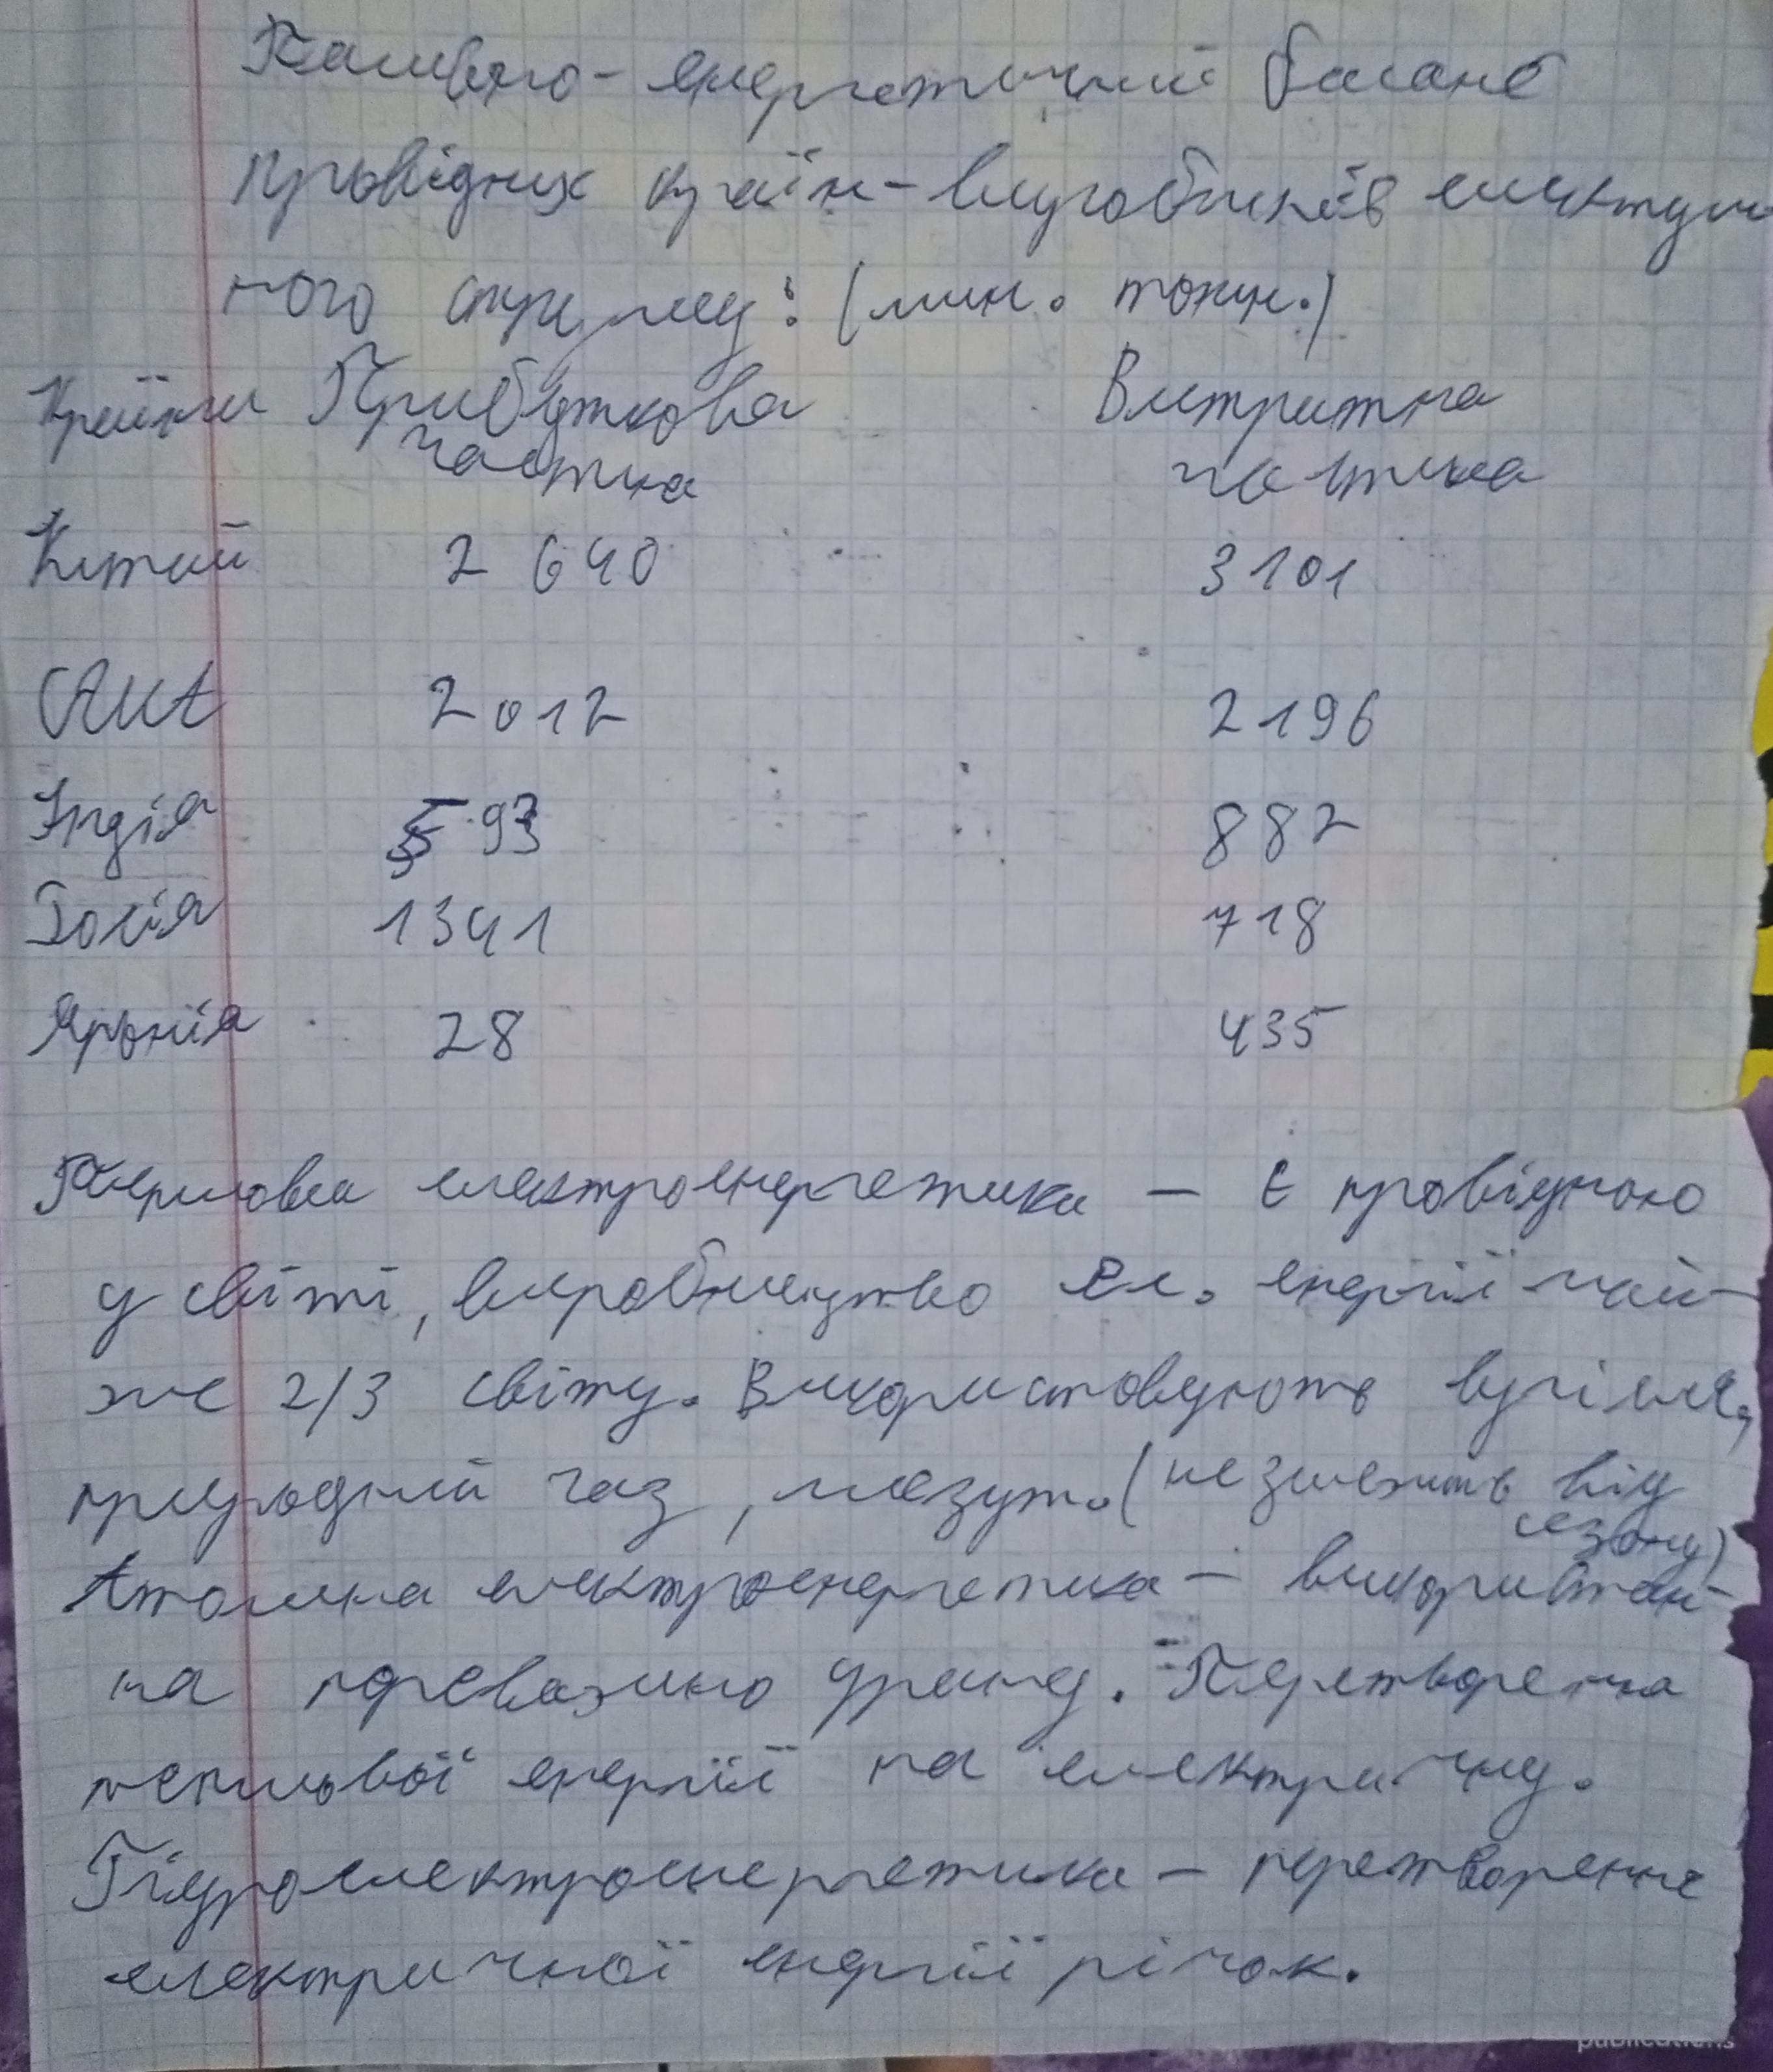 Паливно-енергетичний баланс
провідних країн-виробників електрич
ного струму: (млн. тонн.)
Країни Прибуткова Витратна
частка частка
Китай 2 640 3101
США 2012 2196
Індія 593 882
Росія 1341 718
Японія 28 435
Теплова електроенергетика — є провідною
у світі, виробництво ел. енергії май-
же 2/3 світу. Використовують вугілля,
природний газ, мазут. (не залежить від
сезону)
Атомна електроенергетика — використан-
на переважно урану. Перетворення
теплової енергії на електричну.
Гідроелектроенергетика — перетворення
електричної енергії річок.
publications